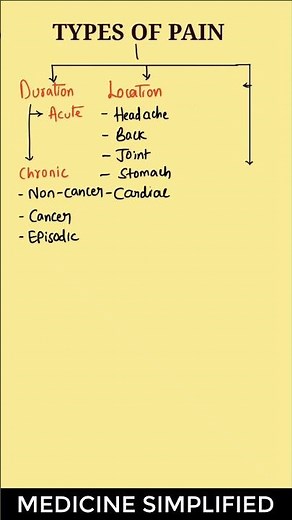 TYPES OF PAIN
Duration
Acute
Chronic
- Non-cancer
- Cancer
- Episodic
Location
- Headache
- Back
- Joint
- Stomach
- Cardial
MEDICINE SIMPLIFIED